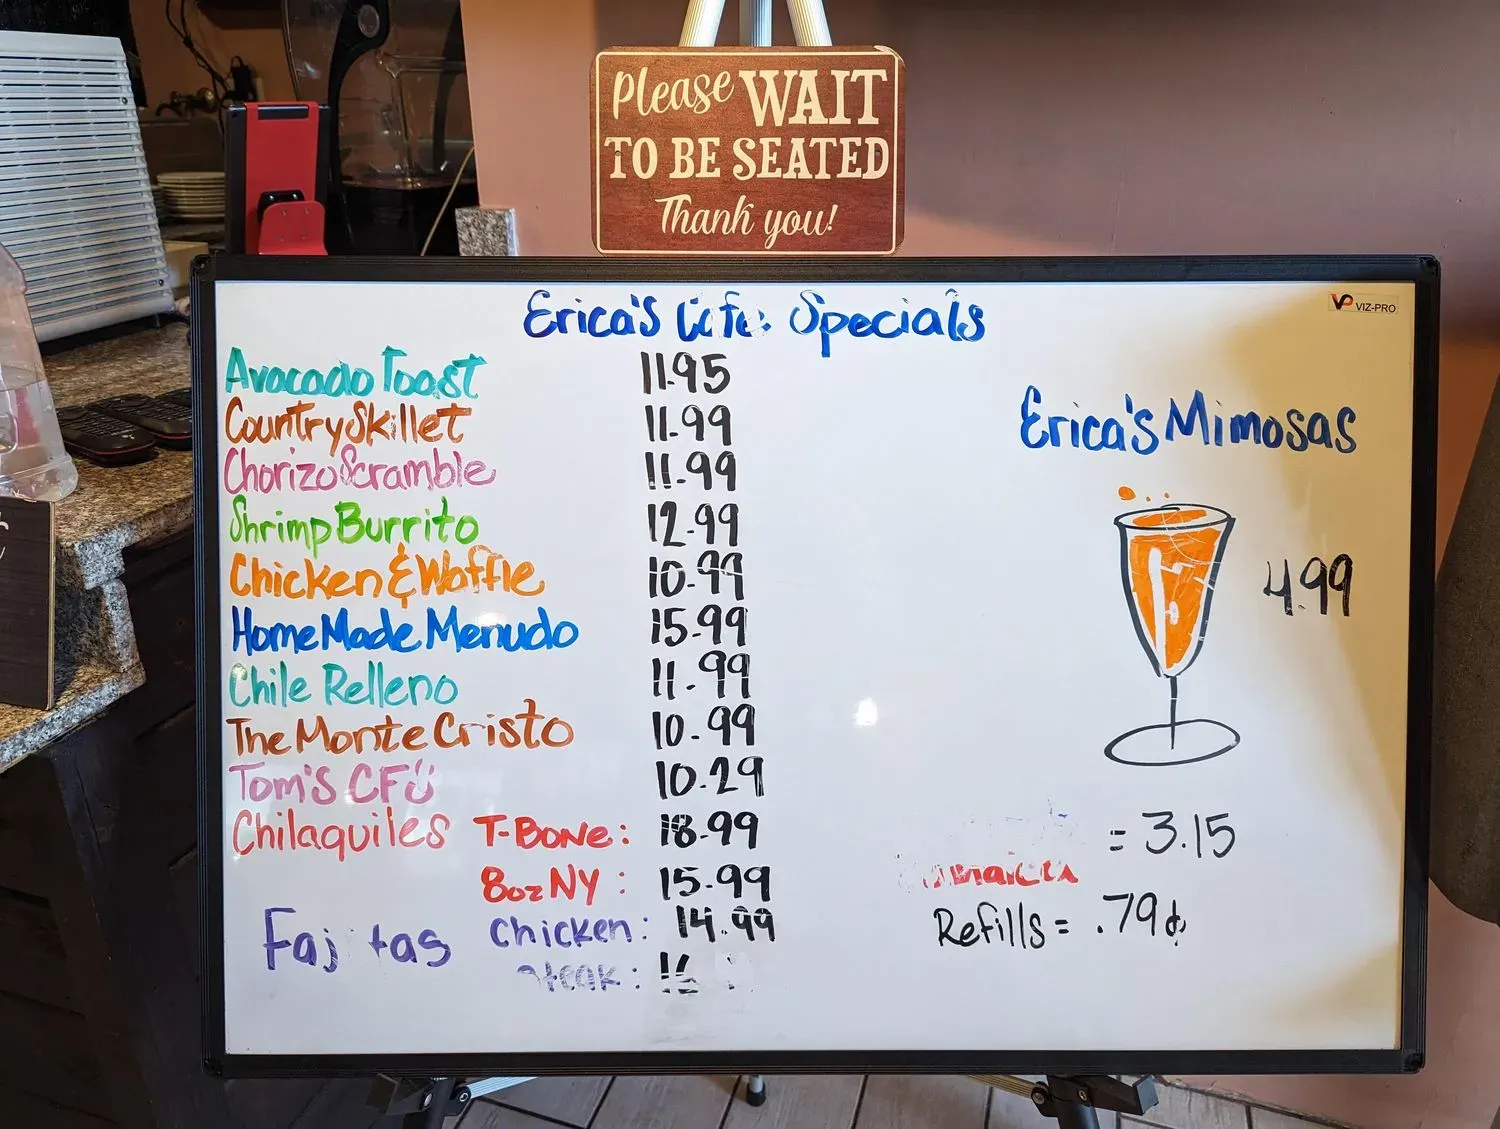 Please WAIT
TO BE SEATED
Thank you!
VIZ-PRO
Erica's Cafe Specials
Avocado Toast 11.95
Country Skillet 11.99
Chorizo Scramble 11.99
Shrimp Burrito 12.99
Chicken & Waffle 10.99
Home Made Menudo 15.99
Chile Relleno 11.99
The Monte Cristo 10.99
Tom's CFS 10.29
Chilaquiles T-Bone: 18.99
8oz NY: 15.99
Fajitas Chicken: 14.99
Steak: 16
Erica's Mimosas
4.99
= 3.15
Jamaica
Refills = .79¢